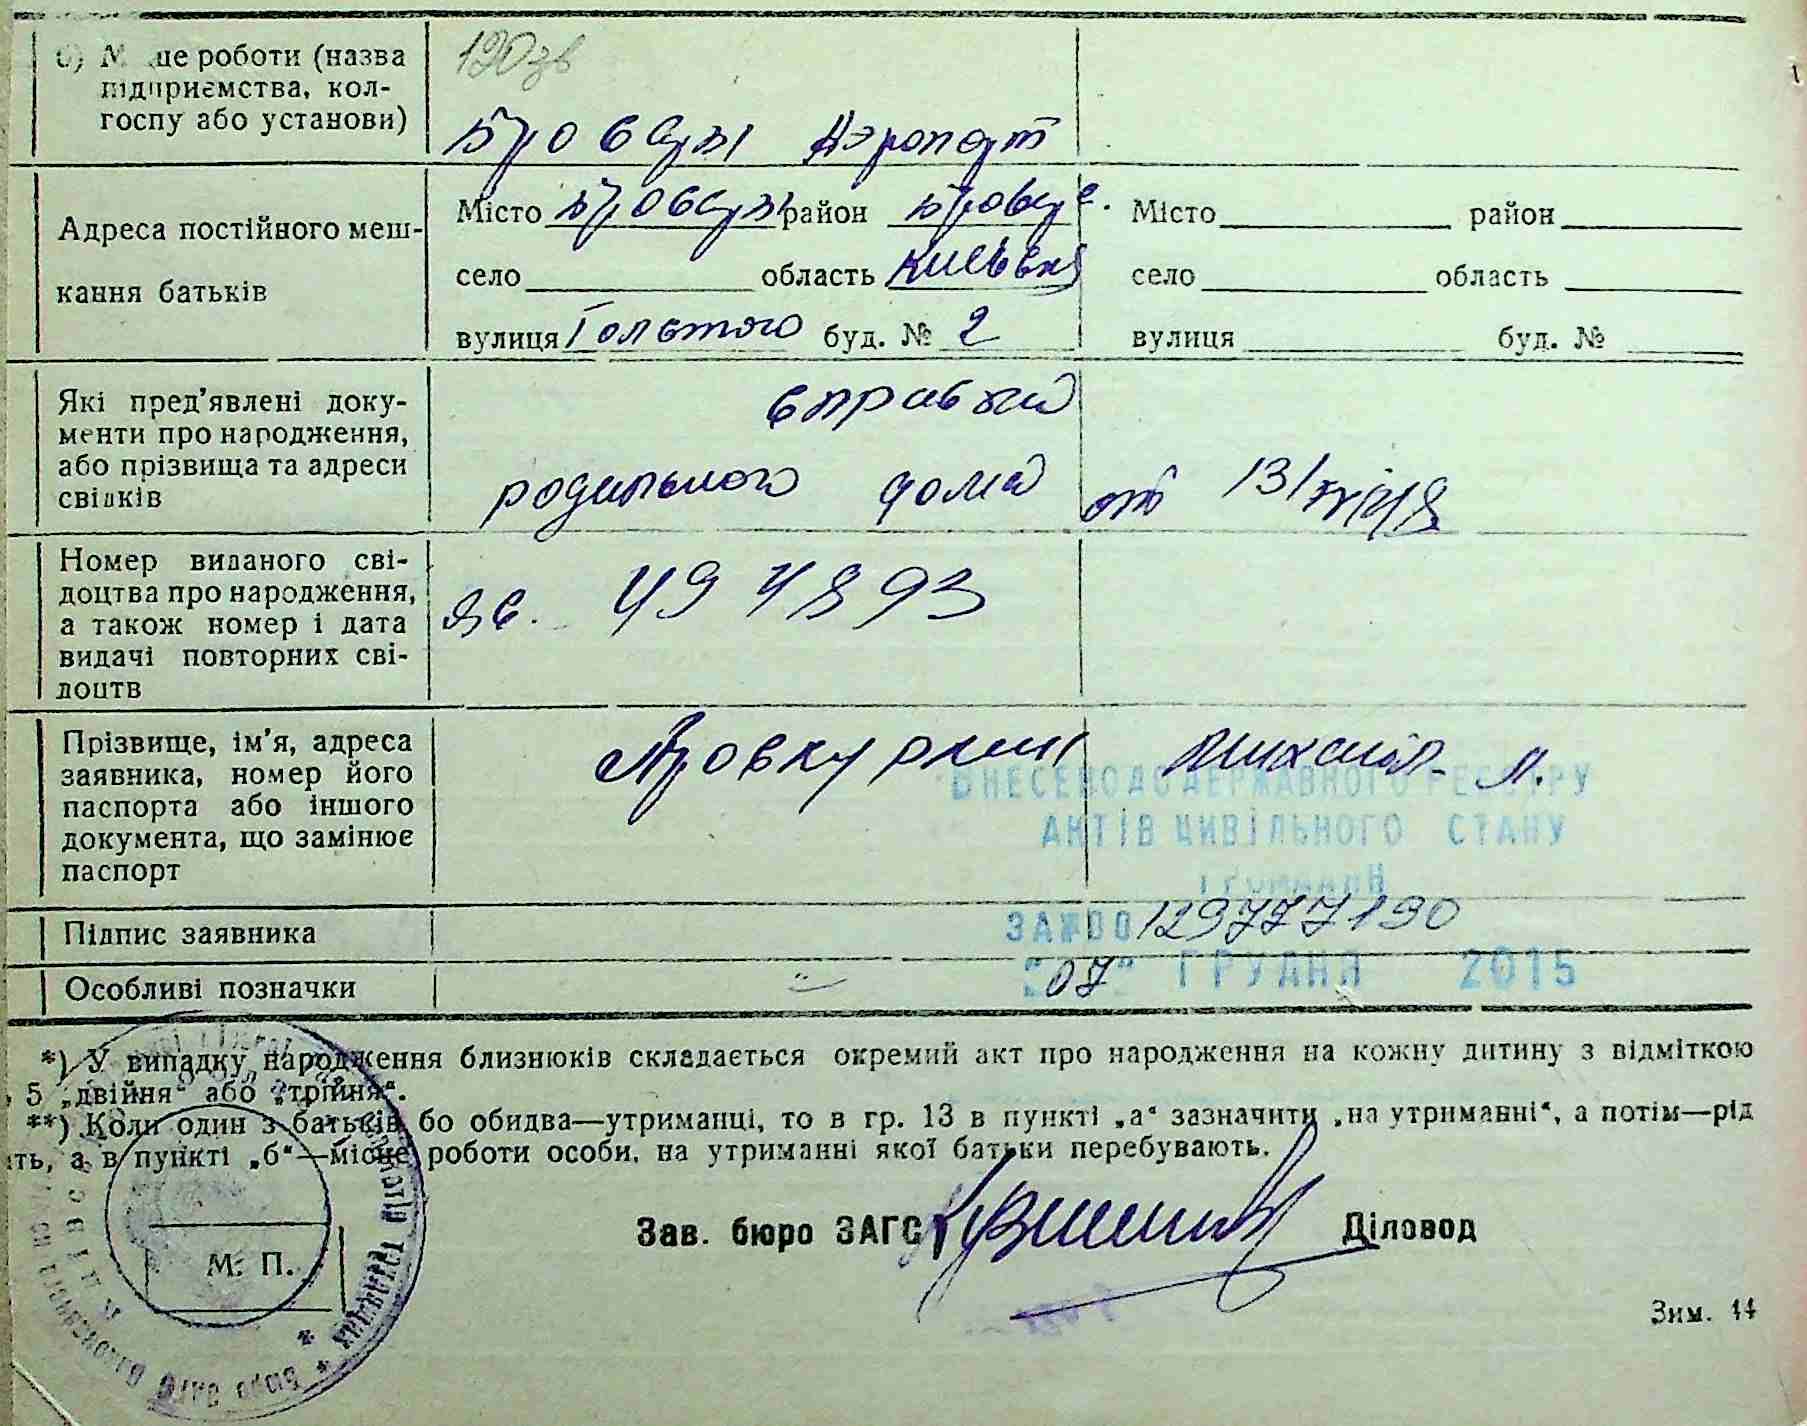 б) Місце роботи (назва
підприємства, кол-
госпу або установи)
190зв
Бровары Аэропорт
Адреса постійного меш-
кання батьків
Місто Бровары район Бровар.
село область Киевск
вулиця Толстого буд. № 2
Місто район
село область
вулиця буд. №
Які пред'явлені доку-
менти про народження,
або прізвища та адреси
свідків
справка
родильного дома от 13/
Номер виданого сві-
доцтва про народження,
а також номер і дата
видачі повторних сві-
доцтв
494893
Прізвище, ім'я, адреса
заявника, номер його
паспорта або іншого
документа, що замінює
паспорт
Михаил
ВНЕСЕНО ДО ДЕРЖАВНОГО РЕЄСТРУ
АКТІВ ЦИВІЛЬНОГО СТАНУ
ГРОМАДЯН
ЗА №00129777190
"07" ГРУДНЯ 2015
Підпис заявника
Особливі позначки
*) У випадку народження близнюків складається окремий акт про народження на кожну дитину з відміткою
5 „двійня“ або „трійня“.
**) Коли один з батьків бо обидва—утриманці, то в гр. 13 в пункті „а“ зазначити „на утриманні“, а потім—рід
ть, а в пункті „б“—місце роботи особи, на утриманні якої батьки перебувають.
Зав. бюро ЗАГС Діловод
М. П.
Зим. 44